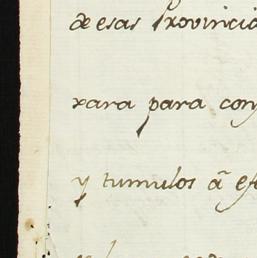 de esas Provincia
rara para con
y tumulos â ef